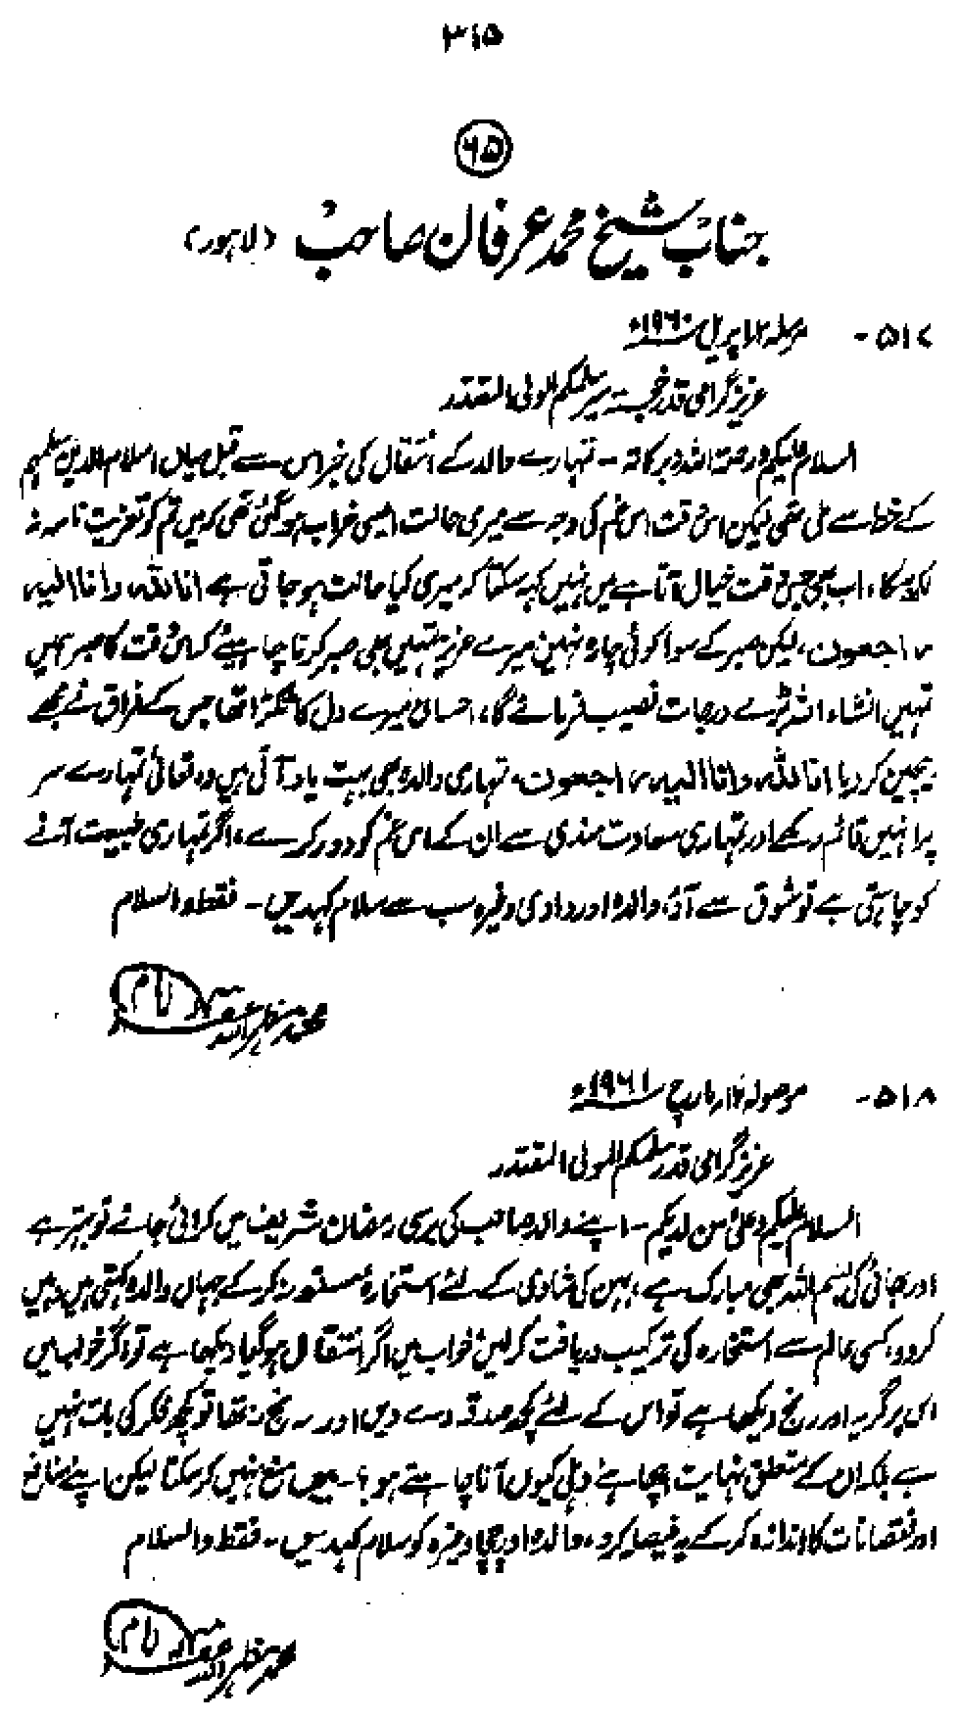 ۳۱۵
۶۵
جناب شیخ محمد عرفان صاحب (لاہور)
۵۱۷- مرسلہ ۱۲ اپریل ۱۹۶۰ء
عزیز گرامی قدر خجستہ سیر سلمکم المولی المقتدر
السلام علیکم ورحمۃ اللہ وبرکاتہ - تمہارے والد کے انتقال کی خبر اس سے قبل میاں اسلام الدین سلمہم
کے خط سے ملی تھی لیکن اس وقت اس غم کی وجہ سے میری حالت ایسی خراب ہو گئی تھی کہ میں تم کو تعزیت نامہ نہ
لکھ سکا، اب بھی جس وقت خیال آتا ہے میں نہیں کہہ سکتا کہ میری کیا حالت ہو جاتی ہے انا للہ وانا الیہ
راجعون، لیکن صبر کے سوا کوئی چارہ نہیں میرے عزیز تمہیں بھی صبر کرنا چاہیئے کہ اس وقت کا صبر ہمیں
تمہیں انشاء اللہ بڑے درجات نصیب فرمائے گا، میرے دل کا ٹکڑا تھا جس کے فراق نے مجھے
بیچین کر دیا انا للہ وانا الیہ راجعون، تمہاری والدہ بھی بہت یاد آتی ہیں وہ تعالیٰ تمہارے سر
پر انہیں قائم رکھے اور تمہاری سعادت مندی سے ان کے اس غم کو دور کرے، اگر تمہاری طبیعت آنے
کو چاہتی ہے تو شوق سے آؤ، والدہ اور دادی وغیرہ سب سے سلام کہدیں - فقط والسلام
محمد مظہر اللہ غفرلہ امام
۵۱۸- موصولہ ۱۲ مارچ ۱۹۶۱ء
عزیز گرامی قدر سلمکم المولی المقتدر
السلام علیکم وعلیٰ من لدیکم - اپنے والد صاحب کی برسی رمضان شریف میں کرائی جائے تو بہتر ہے
اور بھائی کی بسم اللہ بھی مبارک ہے، بہن کی شادی کے لئے استخارۂ مسنونہ کر کے جہاں والدہ کہتی ہیں وہیں
کر دو، کسی عالم سے استخارہ کی ترکیب دریافت کر لیں خواب میں اگر انتقال ہو گیا دیکھا ہے تو اگر خواب میں
اس پر گریہ اور رنج دیکھا ہے تو اس کے لئے کچھ صدقہ دے دیں اور یہ رنج نہ تھا تو کچھ فکر کی بات نہیں
ہے بلکہ ان کے متعلق نہایت اچھا ہے دہلی کیوں آنا چاہتے ہو؟ - میں منع نہیں کر سکتا لیکن اپنے منافع
اور نقصانات کا اندازہ کر کے یہ فیصلہ کرو، والدہ اور چچا وغیرہ کو سلام کہدیں - فقط والسلام
محمد مظہر اللہ غفرلہ امام